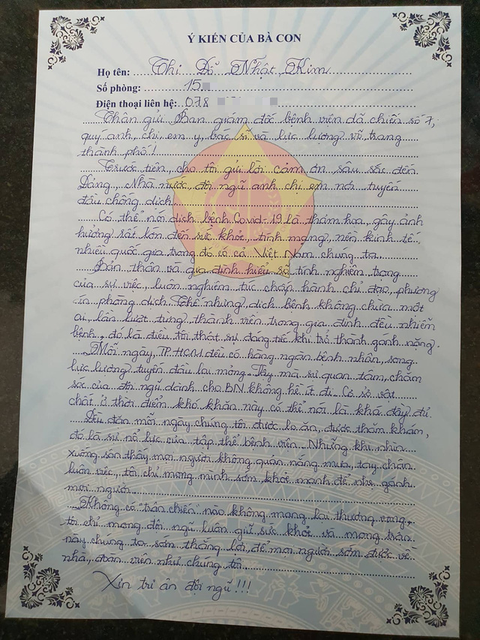 Ý KIẾN CỦA BÀ CON
Họ tên: Thi Đỗ Nhật Kim
Số phòng: 15
Điện thoại liên hệ: 078
Thân gửi Ban giám đốc bệnh viện dã chiến số 7,
quý anh, chị em y, bác sĩ và lực lượng vũ trang
thành phố!
Trước tiên, cho tôi gửi lời cảm ơn sâu sắc đến
Đảng, Nhà nước, đội ngũ anh chị em nơi tuyến
đầu chống dịch.
Có thể nói dịch bệnh Covid-19 là thảm họa, gây ảnh
hưởng rất lớn đến sức khỏe, tính mạng, nền kinh tế
nhiều quốc gia trong đó có cả Việt Nam chúng ta.
Bản thân và gia đình hiểu rõ tính nghiêm trọng
của sự việc, luôn nghiêm túc chấp hành chỉ đạo, phương
án phòng dịch. Thế nhưng dịch bệnh không chừa một
ai, lần lượt từng thành viên trong gia đình đều nhiễm
bệnh, đó là điều tôi thật sự đáng tiếc khi trở thành gánh nặng.
Mỗi ngày, TP.HCM đều có hàng ngàn bệnh nhân, song
lực lượng tuyến đầu lại mỏng. Vậy mà sự quan tâm, chăm
sóc của đội ngũ dành cho BN không hề ít đi. Cơ sở vật
chất ở thời điểm khó khăn này có thể nói là khá đầy đủ.
Đều đặn mỗi ngày chúng tôi được lo ăn, được thăm khám,
đó là sự nỗ lực của tập thể bệnh viện. Những khi nhìn
xuống sân thấy mọi người không quản nắng mưa, tay chân
luôn việc, tôi chỉ mong mình sớm khỏe mạnh để nhẹ gánh
mọi người.
Không có trận chiến nào không mang lại thương vong,
tôi chỉ mong đội ngũ luôn giữ sức khỏe và mong trận
này chúng ta sớm thắng lợi, để mọi người sớm được về
nhà, đoàn viên như chúng tôi.
Xin tri ân đội ngũ!!!